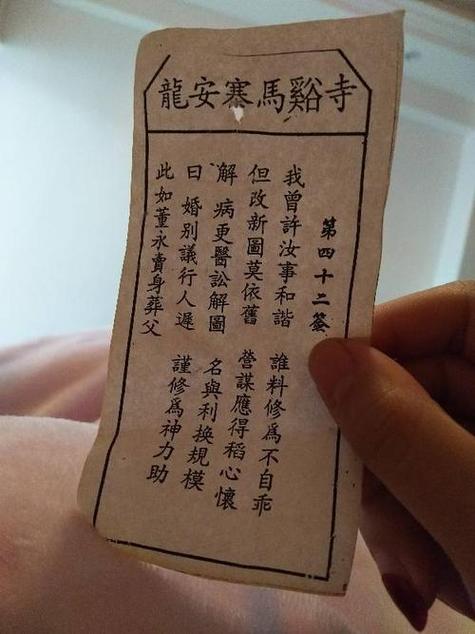 龍安塞馬谿寺
第四十二簽
我曾許汝事和諧 誰料修為不自乖
但改新圖莫依舊 營謀應得稻心懷
解 病更醫訟解圖 名與利換規模
曰 婚別議行人遲 謹修為神力助
此如董永賣身葬父